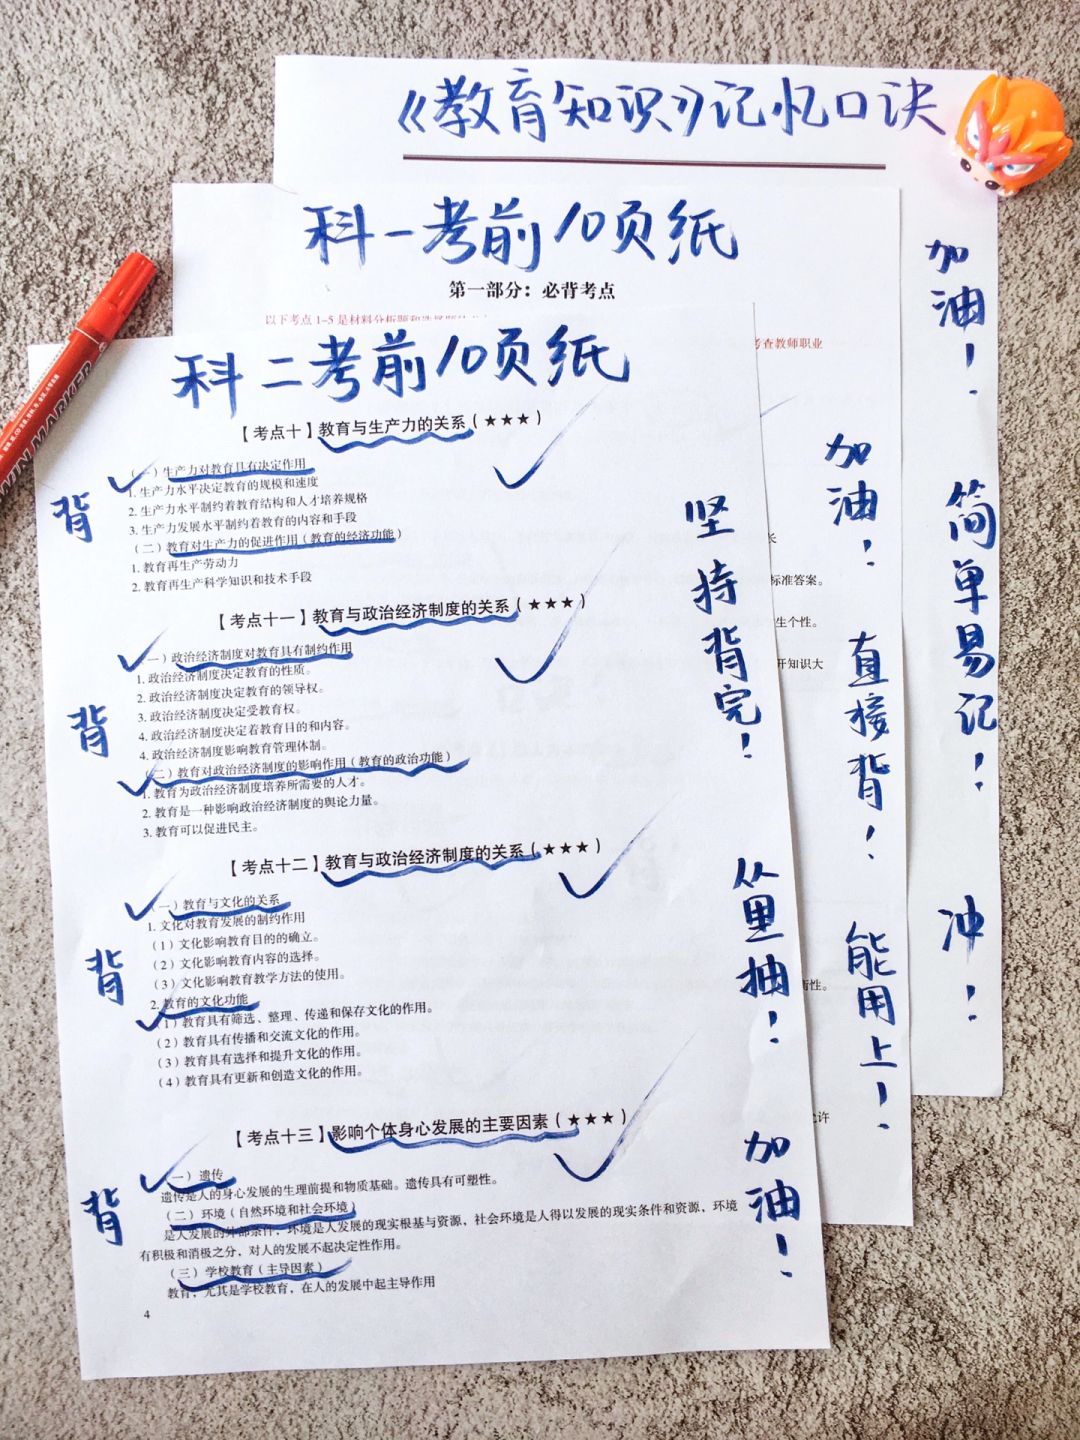 《教育知识》记忆口诀
科一考前10页纸
第一部分：必背考点
以下考点 1-5 是材料分析题和
考查教师职业
科二考前10页纸
【考点十】教育与生产力的关系（★★★）
（一）生产力对教育具有决定作用
1. 生产力水平决定教育的规模和速度
2. 生产力水平制约着教育结构和人才培养规格
3. 生产力发展水平制约着教育的内容和手段
（二）教育对生产力的促进作用（教育的经济功能）
1. 教育再生产劳动力
2. 教育再生产科学知识和技术手段
【考点十一】教育与政治经济制度的关系（★★★）
（一）政治经济制度对教育具有制约作用
1. 政治经济制度决定教育的性质。
2. 政治经济制度决定教育的领导权。
3. 政治经济制度决定受教育权。
4. 政治经济制度决定着教育目的和内容。
4. 政治经济制度影响教育管理体制。
（二）教育对政治经济制度的影响作用（教育的政治功能）
1. 教育为政治经济制度培养所需要的人才。
2. 教育是一种影响政治经济制度的舆论力量。
3. 教育可以促进民主。
【考点十二】教育与政治经济制度的关系（★★★）
（一）教育与文化的关系
1. 文化对教育发展的制约作用
（1）文化影响教育目的的确立。
（2）文化影响教育内容的选择。
（3）文化影响教育教学方法的使用。
2. 教育的文化功能
（1）教育具有筛选、整理、传递和保存文化的作用。
（2）教育具有传播和交流文化的作用。
（3）教育具有选择和提升文化的作用。
（4）教育具有更新和创造文化的作用。
【考点十三】影响个体身心发展的主要因素（★★★）
（一）遗传
遗传是人的身心发展的生理前提和物质基础。遗传具有可塑性。
（二）环境（自然环境和社会环境）
是人发展的外部条件，环境是人发展的现实根基与资源，社会环境是人得以发展的现实条件和资源，环境
有积极和消极之分，对人的发展不起决定性作用。
（三）学校教育（主导因素）
教育，尤其是学校教育，在人的发展中起主导作用
4
背
背
背
背
坚持背完！
从里抽！
加油！
长
标准答案。
生个性。
开知识大
衡性。
允许
加油！
直接背！
能用上！
加油！
简单易记！
冲！
MARKER